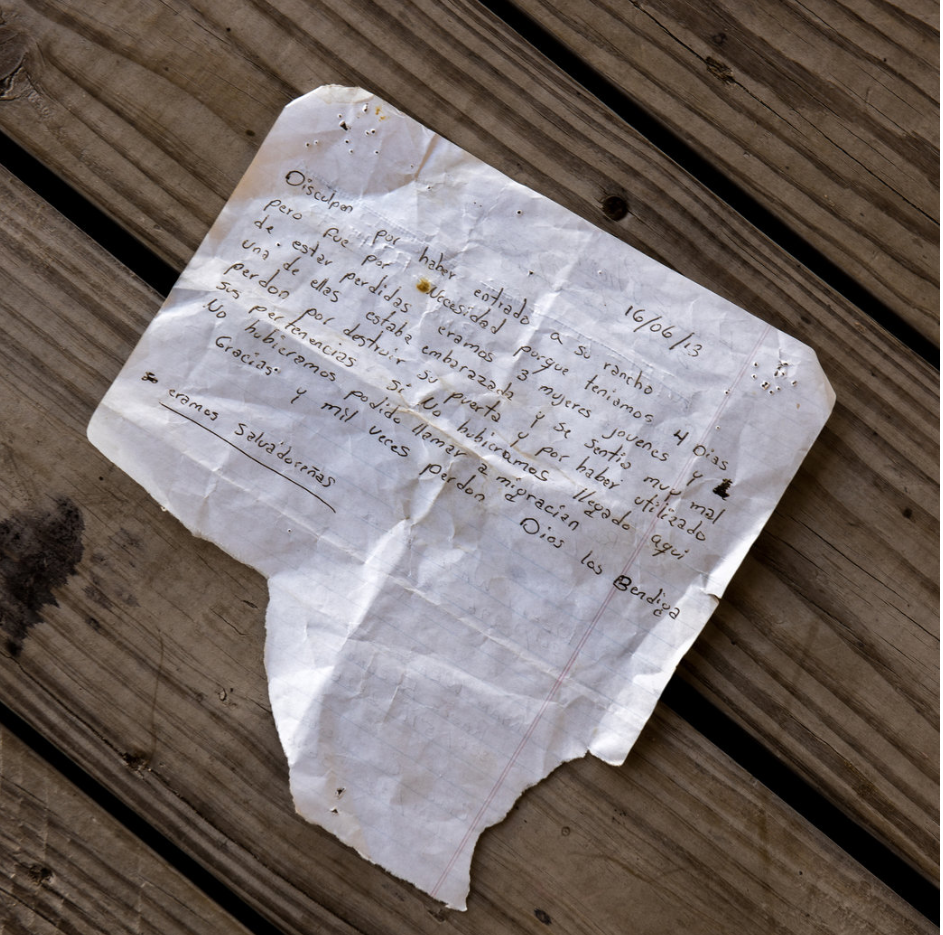 16/06/13
Disculpen por haber entrado a su rancho
pero fue por Necesidad porque teniamos 4 Dias
de estar perdidas eramos 3 mujeres jovenes y
una de ellas estaba embarazada y se sentia muy mal
perdon por destruir su puerta y por haber utilizado
sus pertenencias si No hubieramos llegado aqui
No hubieramos podido llamar a migracian
Gracias y mil veces perdon
Dios los Bendiga
eramos salvadoreñas